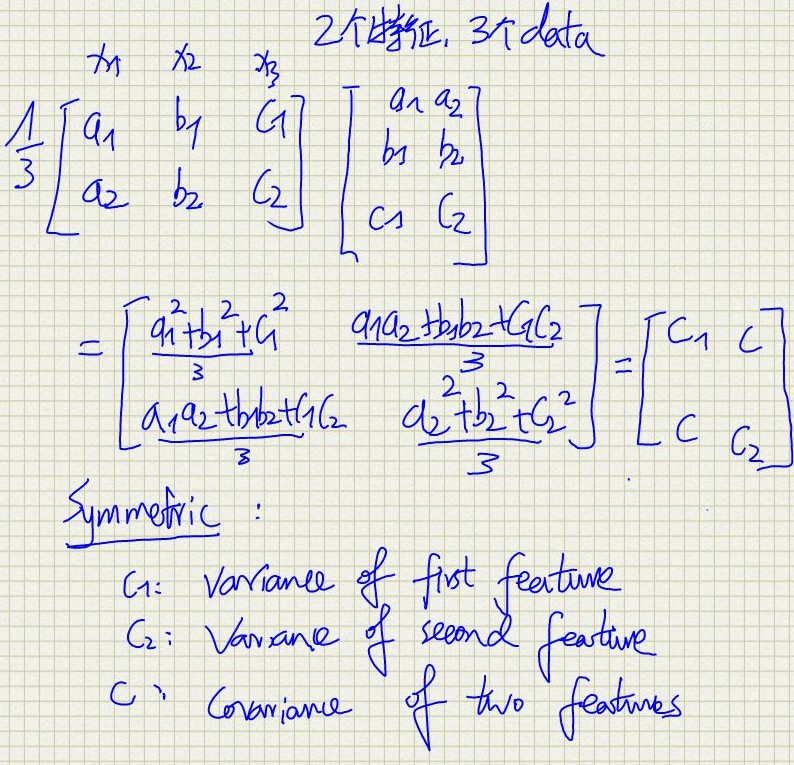 2个特征, 3个data
x1 x2 x3
1/3 [a1 b1 c1; a2 b2 c2] [a1 a2; b1 b2; c1 c2]
= [(a1²+b1²+c1²)/3 (a1a2+b1b2+c1c2)/3; (a1a2+b1b2+c1c2)/3 (a2²+b2²+c2²)/3] = [C1 C; C C2]
Symmetric :
C1: Variance of first feature
C2: Variance of second feature
C: Covariance of two features